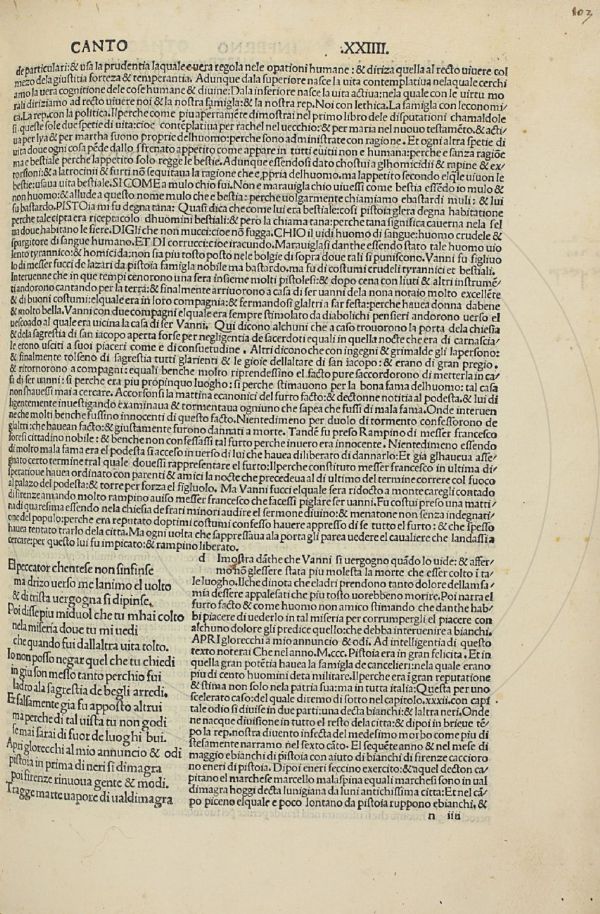 103
CANTO .XXIIII.
de particulari: & usa la prudentia laquale e uera regola nele opationi humane: & diriza quella al recto uiuere col
mezo dela giustitia forteza & temperantia. Adunque dala superiore nasce la uita contemplatiua nelaquale cerchi
amo la uera cognitione dele cose humane & diuine: Dala inferiore nasce la uita actiua: nela quale con le uirtu mo
rali diriziamo ad recto uiuere noi & la nostra famigla: & la nostra rep. Noi con lethica. La famigla con leconomi
ca. La rep. con la politica. Ilperche come piu apertamẽte dimostrai nel primo libro dele disputationi chamaldole
si queste sole due spetie di uita: cioe contẽplatiua per rachel nel uecchio: & per maria nel nuouo testamẽto. & acti/
ua per lya & per martha suono proprie delhuomo: perche sono administrate con ragione. Et ogni altra spetie di
uita doue ogni cosa pẽde dallo sfrenato appetito come appare in tutti euitii non e humana: perche e sanza ragiõe
ma e bestiale perche lappetito solo regge le bestie. Adunque essendosi dato chostui a glhomicidii & rapine & ex/
torsioni: & a latrocinii & furti nõ sequitana la ragione che e ppria delhuomo. ma lappetito secondo elqle uiuon le
bestie: usaua uita bestiale. SI COME a mulo chio fui. Non e marauigla chio uiuessi come bestia essẽdo io mulo &
non huomo: & allude a questo nome mulo che e bestia: perche uolgarmente chiamiamo ebastardi muli: & lui
fu bastardo. PISTOia mi fu degna tana: Quasi dica che come lui era bestiale: cosi pistoia glera degna habitatione
perche tale cipta era riceptacolo dhuomini bestiali: & pero la chiama tana: perche tana significa cauerna nela sel
ua doue habitano le fiere. DIGli che non mucci: cioe nõ fugga. CHIO il uidi huomo di sangue: huomo crudele &
spurgitore di sangue humano. ET DI corrucci: cioe iracundo. Marauiglasi danthe essendo stato tale huomo uio
lento tyrannico: & homicida: non sia piu tosto posto nele bolgie di sopra doue tali si puniscono. Vanni fu figliuo
lo di messer fucci de lazari da pistoia famigla nobile ma bastardo. ma fu di costumi crudeli tyrannici et bestiali.
Interuenne che in que tempi cenorono una sera insieme molti pistolesi: & dopo cena con liuti & altri instrumẽ/
ti andorono cantando per la terra: & finalmente arriuorono a casa di ser uanni dela nona notaio molto excellẽte
& di buoni costumi: elquale era in loro compagnia: & fermandosi glaltri a far festa: perche hauea donna dabene
& molto bella. Vanni con due compagni elquale era sempre stimolato da diabolichi pensieri andorono uerso el
uescoado al quale era uicina la casa di ser Vanni. Qui dicono alchuni che a caso trouorono la porta dela chiesa
& dela sagrestia di san iacopo aperta forse per negligentia de sacerdoti equali in quella nocte che era di carnascia/
le erono usciti a suoi piaceri come e di consuetudine. Altri dicono che con ingegni & grimalde gli lapersono:
& finalmente tolseno di sagrestia tutti glarienti & le gioie dellaltare di san iacopo: & erano di gran pregio.
& ritornorono a compagni: equali benche molto riprendessino el facto pure saccordorono di metterla in ca/
sa di ser uanni: si perche era piu propinquo luogho: si perche stimauono per la bona fama delhuomo: tal casa
non shauessi mai a cercare. Accorsonsi la mattina ecanonici del furto facto: & dectonne notitia al podesta. & lui di
ligentemente inuestigando examinaua & tormentaua ogniuno che sapea che fussi di mala fama. Onde interuen
ne che molti benche fussino innocenti di questo facto. Nientedimeno per duolo di tormento confessorono de
glaltri: che haueano facto: & giustamente furono dannati a morte. Tandẽ fu preso Rampino di messer francesco
foresi cittadino nobile: & benche non confessassi tal furto perche inuero era innocente. Nientedimeno essendo
di molto mala fama era el podesta si acceso in uerso di lui che hauea diliberato di dannarlo: Et gia glhauea asse
gnato certo termine tral quale douessi rappresentare el furto: Ilperche constituto messer francesco in ultima di/
speratione hauea ordinato con parenti & amici la nocte che precedeua al di ultimo del termine correre col fuoco
al palazo del podesta: & torre per forza el figluolo. Ma Vanni fucci elquale sera ridocto a monte caregli contado
di firenze amando molto rampino auiso messer francesco che facessi piglare ser uanni. Fu costui preso una matti/
na di quaresima essendo nela chiesa de frati minori audire el sermone diuino: & menatone non senza indegnati/
one del populo: perche era reputato doptimi costumi confesso hauere appresso di se tutto el furto: & che spesso
hauea tentato trarlo dela citta. Ma ogni uolta che sappressaua ala porta gli parea uedere el caualiere che landassi a
cercare: per questo lui fu impicato: & rampino liberato.
El peccator che ntese non sinfinse
ma drizo uerso me lanimo el uolto
& di trista uergogna si dipinse.
Poi disse piu mi duol che tu mhai colto
nela miseria doue tu mi uedi
che quando fui dallaltra uita tolto.
Io non posso negar quel che tu chiedi
in giu son messo tanto perchio fui
ladro ala sagrestia de begli arredi.
Et falsamente gia fu apposto altrui
ma perche di tal uista tu non godi
se mai sarai di fuor de luoghi bui.
Apri glorecchi al mio annuncio & odi
pistoia in prima di neri si dimagra
poi firenze rinuoua gente & modi.
Tragge marte uapore di ualdimagra
d Imostra dãthe che Vanni si uergogno quãdo lo uide: & affer/
mo nõ glessere stata piu molesta la morte che esser colto i ta
le luogho. Ilche dinota che eladri prendono tanto dolore dellamfa/
mia dessere appalesati che piu tosto uorebbeno morire. Poi narra el
furto facto & come huomo non amico stimando che danthe hab/
bi piacere di uederlo in tal miseria per corrumpergli el piacere con
alchuno dolore gli predice quello: che debba interuenire a bianchi.
APRI glorecchi a mio annuncio & odi. Ad intelligentia di questo
texto noterai Che nel anno. M. ccc. Pistoia era in gran felicita. Et in
quella gran potẽtia hauea la famigla de cancelieri: nela quale erano
piu di cento huomini deta militare. Ilperche era i gran reputatione
& stima non solo nela patria sua: ma in tutta italia: Questa per uno
scelerato caso: del quale diremo di sotto nel capitolo. xxxii. con capi
tale odio si diuise in due parti: una decta bianchi: & laltra neri. Onde
ne nacque diuisione in tutto el resto dela citta: & dipoi in brieue tẽ/
po la rep. nostra diuento infecta del medesimo morbo come piu di
stesamente narramo nel sexto cãto. El sequẽte anno & nel mese di
maggio ebianchi di pistoia con aiuto di bianchi di firenze caccioro
no eneri di pistoia. Dipoi eneri feccino exercito: & aquel decton ca/
pitano el marchese marcello malaspina equali marchesi sono in ual
dimagra hoggi decta lunigiana da luni antichissima citta: Et nel cã/
po piceno elquale e poco lontano da pistoia ruppono ebianchi. &
n iiii